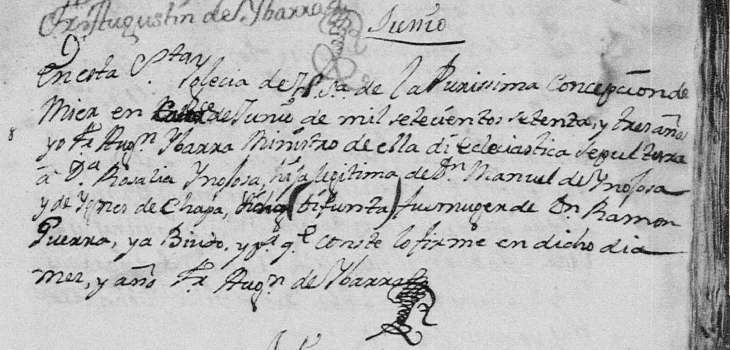 Fr. Augustin de S. Ybarra
Junio
9
En esta Sta Yglecia de N. Sa. de la Purissima Concepcion de
Mier en de Junio de mil setecientos setenta, y tres años
8
yo Fr. Augn. Ybarra Ministro de ella di eclesiastica sepultura
à Da. Rosalia Ynososa, hija legitima de Dn. Manuel de Ynososa
y de Ygnes de Chapa, dicha (difunta) fue muger de Dn Ramon
Guerra, ya Biudo, y pa. qe. conste lo firme en dicho dia
mes, y año Fr. Augn. de Ybarra